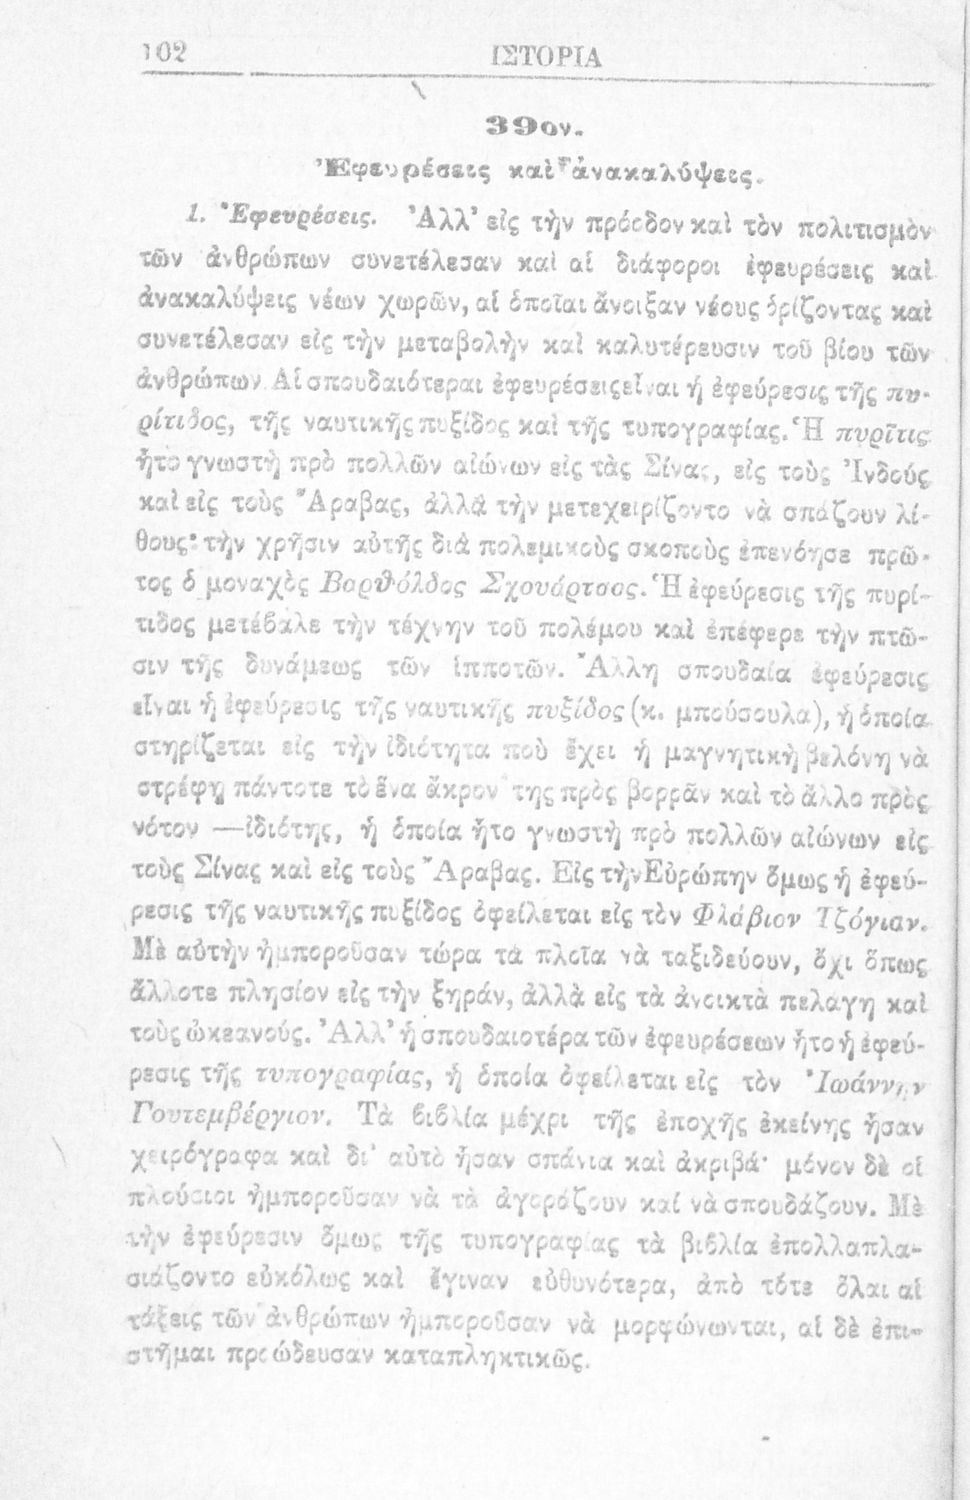 102 ΙΣΤΟΡΙΑ
39ον.
Ἐφευρέσεις καὶ ἀνακαλύψεις.
1. Ἐφευρέσεις. Ἀλλ' εἰς τὴν πρόοδον καὶ τὸν πολιτισμὸν
τῶν ἀνθρώπων συνετέλεσαν καὶ αἱ διάφοροι ἐφευρέσεις καὶ
ἀνακαλύψεις νέων χωρῶν, αἱ ὁποῖαι ἄνοιξαν νέους ὁρίζοντας καὶ
συνετέλεσαν εἰς τὴν μεταβολὴν καὶ καλυτέρευσιν τοῦ βίου τῶν
ἀνθρώπων. Αἱ σπουδαιότεραι ἐφευρέσεις εἶναι ἡ ἐφεύρεσις τῆς πυ-
ρίτιδος, τῆς ναυτικῆς πυξίδος καὶ τῆς τυπογραφίας. Ἡ πυρῖτις
ἦτο γνωστὴ πρὸ πολλῶν αἰώνων εἰς τὰς Σίνας, εἰς τοὺς Ἰνδούς
καὶ εἰς τοὺς Ἄραβας, ἀλλὰ τὴν μετεχειρίζοντο νὰ σπάζουν λί-
θους· τὴν χρῆσιν αὐτῆς διὰ πολεμικοὺς σκοποὺς ἐπενόησε πρῶ-
τος ὁ μοναχὸς Βαρθόλδος Σχουάρτσος. Ἡ ἐφεύρεσις τῆς πυρί-
τιδος μετέβαλε τὴν τέχνην τοῦ πολέμου καὶ ἐπέφερε τὴν πτῶ-
σιν τῆς δυνάμεως τῶν ἱπποτῶν. Ἄλλη σπουδαία ἐφεύρεσις
εἶναι ἡ ἐφεύρεσις τῆς ναυτικῆς πυξίδος (κ. μπούσουλα), ἡ ὁποία
στηρίζεται εἰς τὴν ἰδιότητα ποὺ ἔχει ἡ μαγνητικὴ βελόνη νὰ
στρέφῃ πάντοτε τὸ ἕνα ἄκρον της πρὸς βορρᾶν καὶ τὸ ἄλλο πρὸς
νότον —ἰδιότης, ἡ ὁποία ἦτο γνωστὴ πρὸ πολλῶν αἰώνων εἰς
τοὺς Σίνας καὶ εἰς τοὺς Ἄραβας. Εἰς τὴν Εὐρώπην ὅμως ἡ ἐφεύ-
ρεσις τῆς ναυτικῆς πυξίδος ὀφείλεται εἰς τὸν Φλάβιον Τζόγιαν.
Μὲ αὐτὴν ἠμποροῦσαν τώρα τὰ πλοῖα νὰ ταξιδεύουν, ὄχι ὅπως
ἄλλοτε πλησίον εἰς τὴν ξηράν, ἀλλὰ εἰς τὰ ἀνοικτὰ πελάγη καὶ
τοὺς ὠκεανούς. Ἀλλ' ἡ σπουδαιοτέρα τῶν ἐφευρέσεων ἦτο ἡ ἐφεύ-
ρεσις τῆς τυπογραφίας, ἡ ὁποία ὀφείλεται εἰς τὸν Ἰωάννην
Γουτεμβέργιον. Τὰ βιβλία μέχρι τῆς ἐποχῆς ἐκείνης ἦσαν
χειρόγραφα καὶ δι' αὐτὸ ἦσαν σπάνια καὶ ἀκριβά· μόνον δὲ οἱ
πλούσιοι ἠμποροῦσαν νὰ τὰ ἀγοράζουν καὶ νὰ σπουδάζουν. Μὲ
τὴν ἐφεύρεσιν ὅμως τῆς τυπογραφίας τὰ βιβλία ἐπολλαπλα-
σιάζοντο εὐκόλως καὶ ἔγιναν εὐθυνότερα, ἀπὸ τότε ὅλαι αἱ
τάξεις τῶν ἀνθρώπων ἠμποροῦσαν νὰ μορφώνωνται, αἱ δὲ ἐπι-
στῆμαι προώδευσαν καταπληκτικῶς.